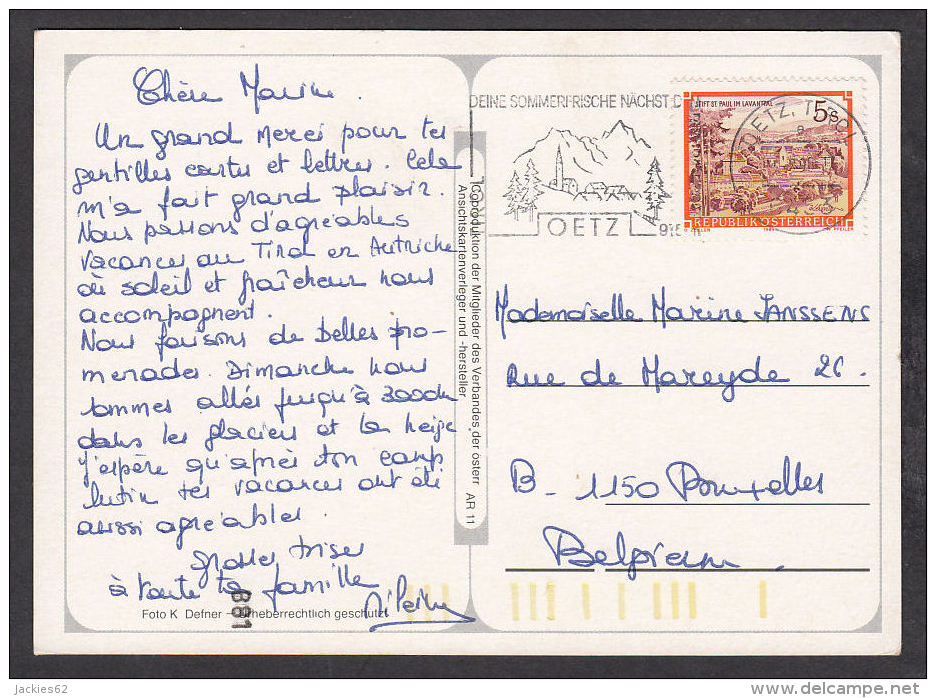 Chère Marine.
Un grand merci pour tes
gentilles cartes et lettres. Cela
m'a fait grand plaisir.
Nous passons d'agréables
vacances au Tirol en Autriche
où soleil et fraîcheur nous
accompagnent.
Nous faisons de belles pro-
menades. Dimanche nous
sommes allés jusqu'à 3000m
dans les glaciers et la neige.
J'espère qu'après ton camp
lutin tes vacances ont été
aussi agréables.
grosses bises
à toute ta famille
Foto K Defner – Urheberrechtlich geschützt
881
Coproduktion der Mitglieder des Verbandes der österr
Ansichtskartenverleger und -hersteller
AR 11
DEINE SOMMERFRISCHE NÄCHST D
OETZ
OETZ, TIROL
STIFT ST. PAUL IM LAVANTTAL
5s
REPUBLIK ÖSTERREICH
Mademoiselle Marine JANSSENS
Rue de Mareyde 26.
B - 1150 Bruxelles
Belgium
jackies62
delcampe.net